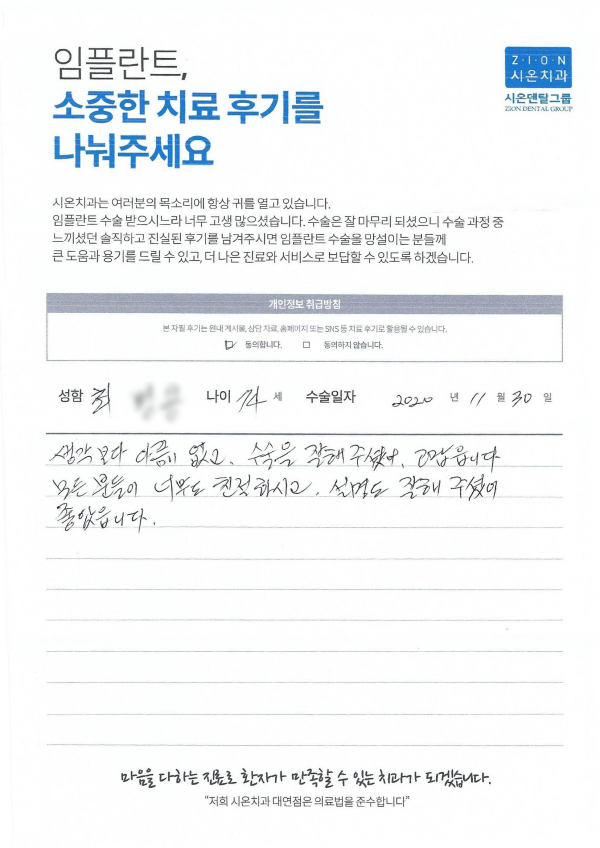 임플란트,
소중한 치료 후기를
나눠주세요
Z·I·O·N
시온치과
시온덴탈그룹
ZION DENTAL GROUP
시온치과는 여러분의 목소리에 항상 귀를 열고 있습니다.
임플란트 수술 받으시느라 너무 고생 많으셨습니다. 수술은 잘 마무리 되셨으니 수술 과정 중
느끼셨던 솔직하고 진실된 후기를 남겨주시면 임플란트 수술을 망설이는 분들께
큰 도움과 용기를 드릴 수 있고, 더 나은 진료와 서비스로 보답할 수 있도록 하겠습니다.
개인정보 취급방침
본 자필 후기는 원내 게시물, 상담 자료, 홈페이지 또는 SNS 등 치료 후기로 활용될 수 있습니다.
동의합니다. 동의하지 않습니다.
성함 최 나이 74 세 수술일자 2020 년 11 월 30 일
생각보다 아픔이 없고, 수술을 잘해 주셨어, 고맙읍니다
모든 분들이 너무도 친절하시고, 설명도 잘해 주셨어
좋았읍니다.
마음을 다하는 진료로 환자가 만족할 수 있는 치과가 되겠습니다.
"저희 시온치과 대연점은 의료법을 준수합니다"